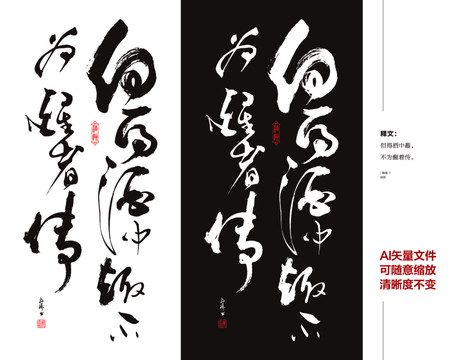 但得酒中趣不
为醒者传
但得酒中趣不
为醒者传
释文：
但得酒中趣，
不为醒者传。
AI矢量文件
可随意缩放
清晰度不变